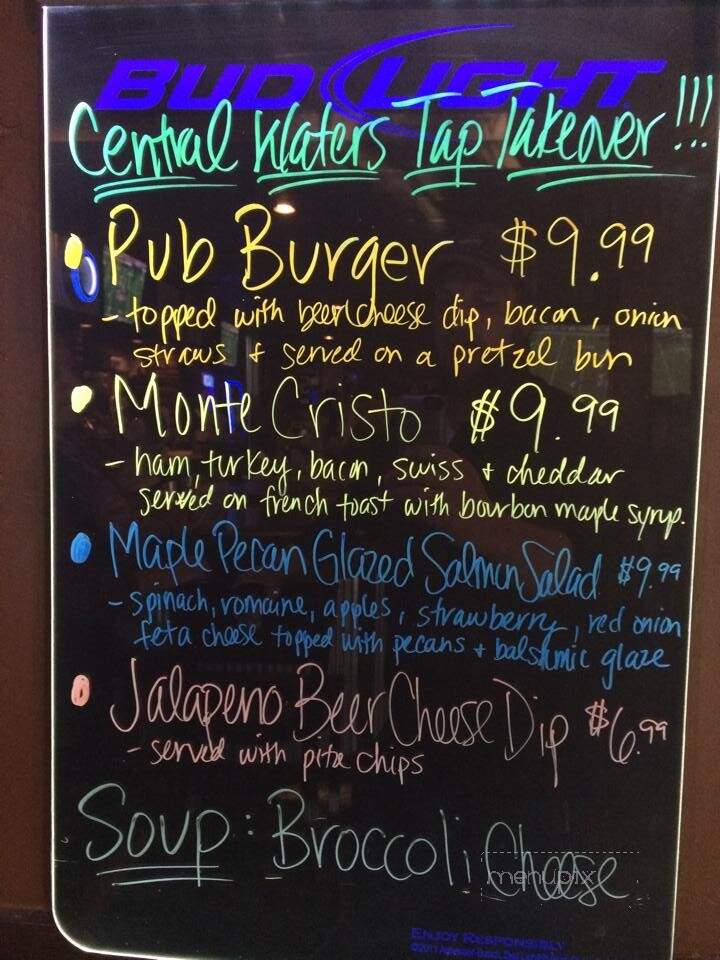 BUD LIGHT
Central Waters Tap Takeover!!!
Pub Burger $9.99
- topped with beer cheese dip, bacon, onion
straws & served on a pretzel bun
Monte Cristo $9.99
- ham, turkey, bacon, swiss & cheddar
served on french toast with bourbon maple syrup.
Maple Pecan Glazed Salmon Salad $9.99
- spinach, romaine, apples, strawberry, red onion
feta cheese topped with pecans & balsamic glaze
Jalapeno Beer Cheese Dip $6.99
- served with pita chips
Soup: Broccoli Cheese
menupix
ENJOY RESPONSIBLY